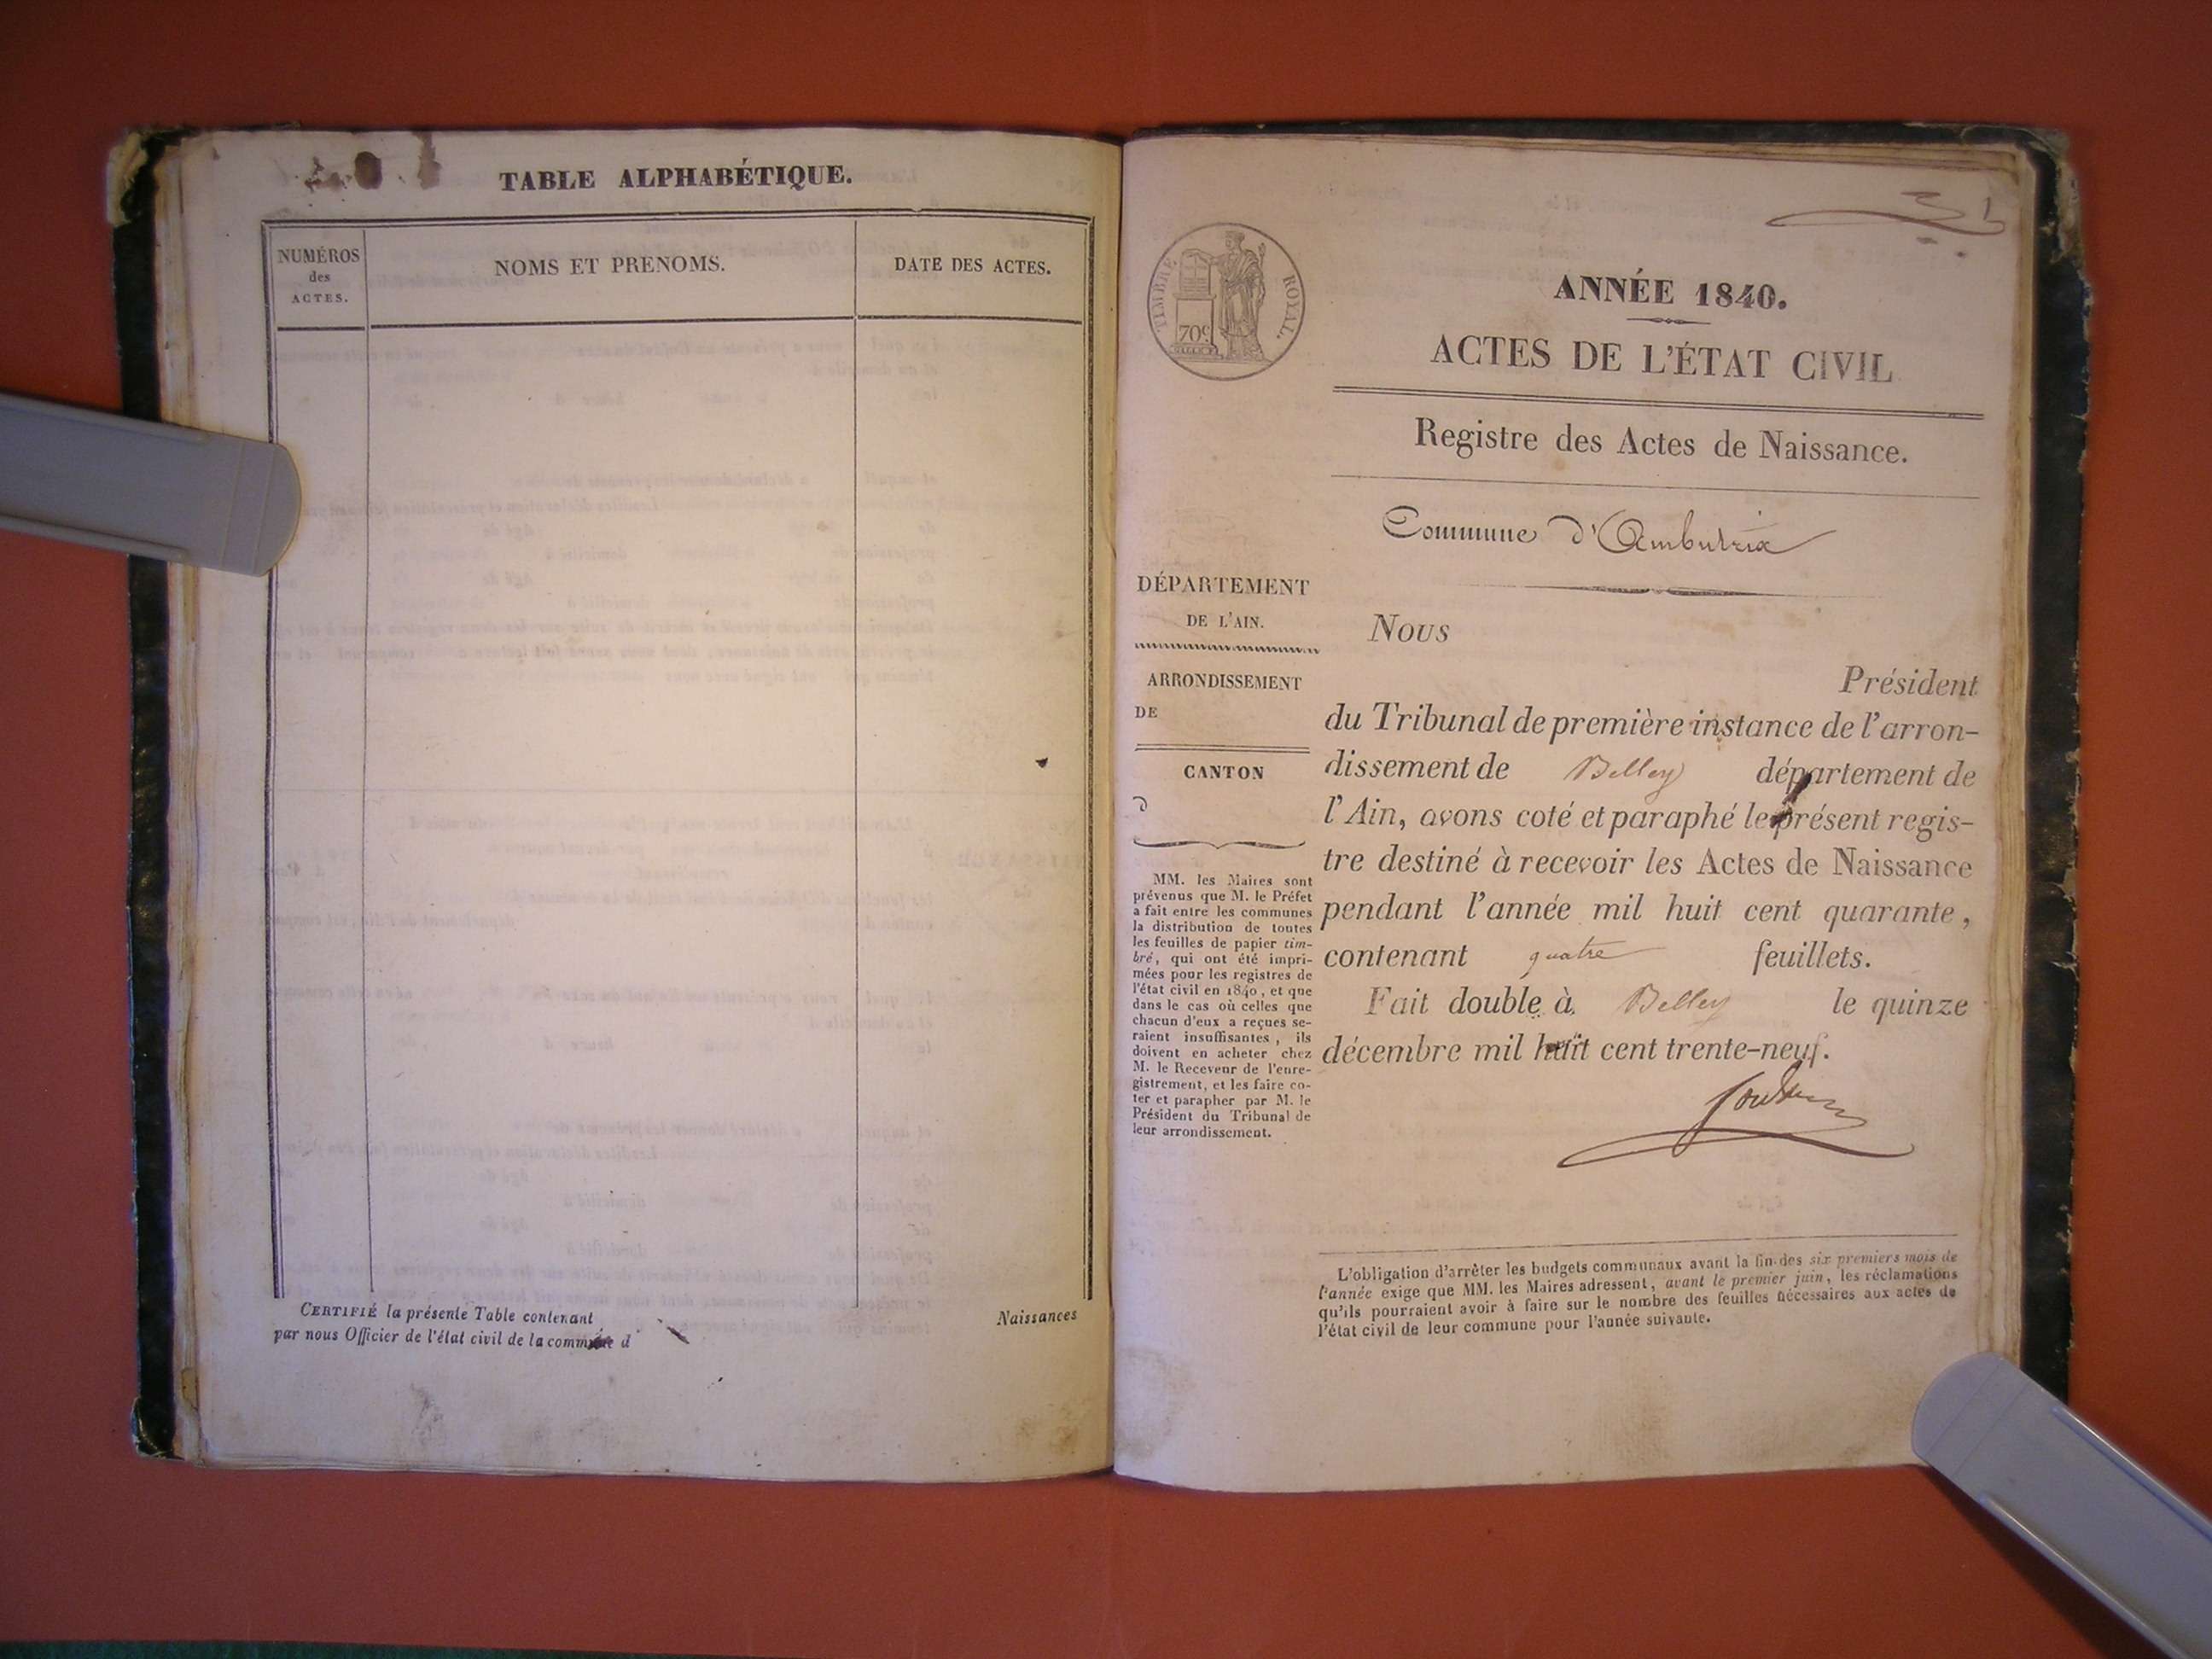 TABLE ALPHABÉTIQUE.
NUMÉROS
des
ACTES.
NOMS ET PRENOMS.
DATE DES ACTES.
CERTIFIÉ la présente Table contenant Naissances
par nous Officier de l'état civil de la commune d
1
TIMBRE ROYAL.
70c
ANNÉE 1840.
ACTES DE L'ÉTAT CIVIL
Registre des Actes de Naissance.
Commune d'Ambutrix
DÉPARTEMENT
DE L'AIN.
ARRONDISSEMENT
DE
CANTON
D
MM. les Maires sont
prévenus que M. le Préfet
a fait entre les communes
la distribution de toutes
les feuilles de papier tim-
bré, qui ont été impri-
mées pour les registres de
l'état civil en 1840, et que
dans le cas où celles que
chacun d'eux a reçues se-
raient insuffisantes, ils
doivent en acheter chez
M. le Receveur de l'enre-
gistrement, et les faire co-
ter et parapher par M. le
Président du Tribunal de
leur arrondissement.
Nous
Président
du Tribunal de première instance de l'arron-
dissement de Belley département de
l'Ain, avons coté et paraphé le présent regis-
tre destiné à recevoir les Actes de Naissance
pendant l'année mil huit cent quarante,
contenant quatre feuillets.
Fait double à Belley le quinze
décembre mil huit cent trente-neuf.
L'obligation d'arrêter les budgets communaux avant la fin des six premiers mois de
l'année exige que MM. les Maires adressent, avant le premier juin, les réclamations
qu'ils pourraient avoir à faire sur le nombre des feuilles nécessaires aux actes de
l'état civil de leur commune pour l'année suivante.